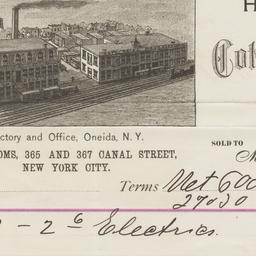 H
Cof
ctory and Office, Oneida, N. Y.
SOLD TO
OMS, 365 AND 367 CANAL STREET,
NEW YORK CITY.
Terms Net 60
27030
- 2 6 Electrics.